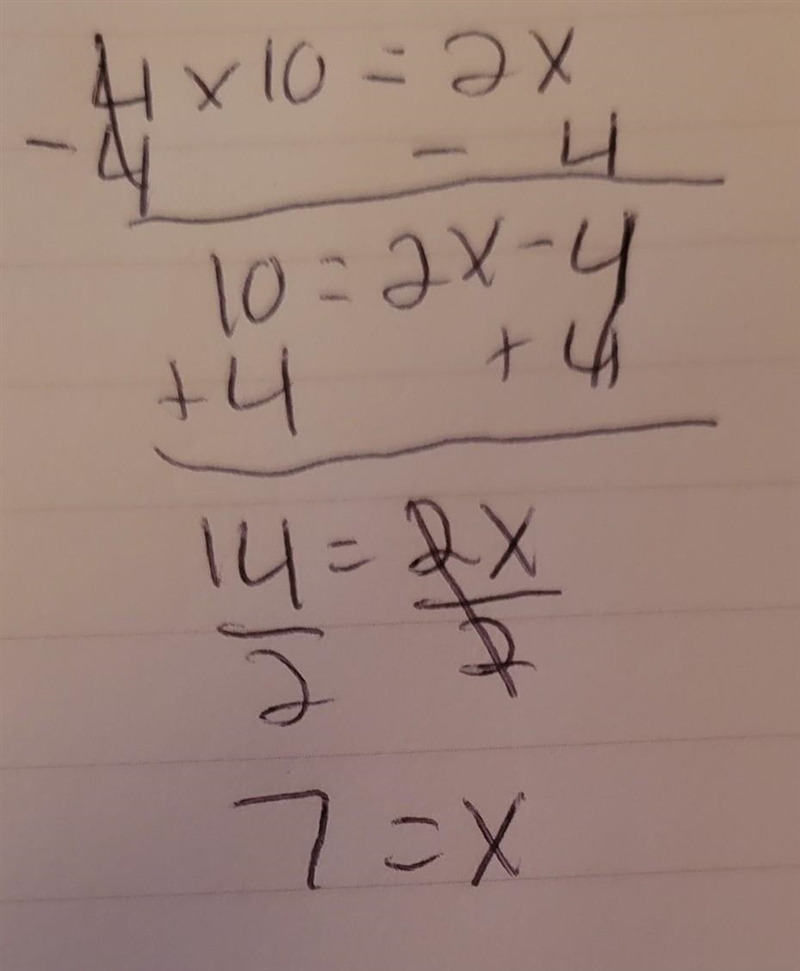 4 x 10 = 2x
- 4 - 4
10 = 2x - 4
+ 4 + 4
14 = 2x
2 2
7 = x